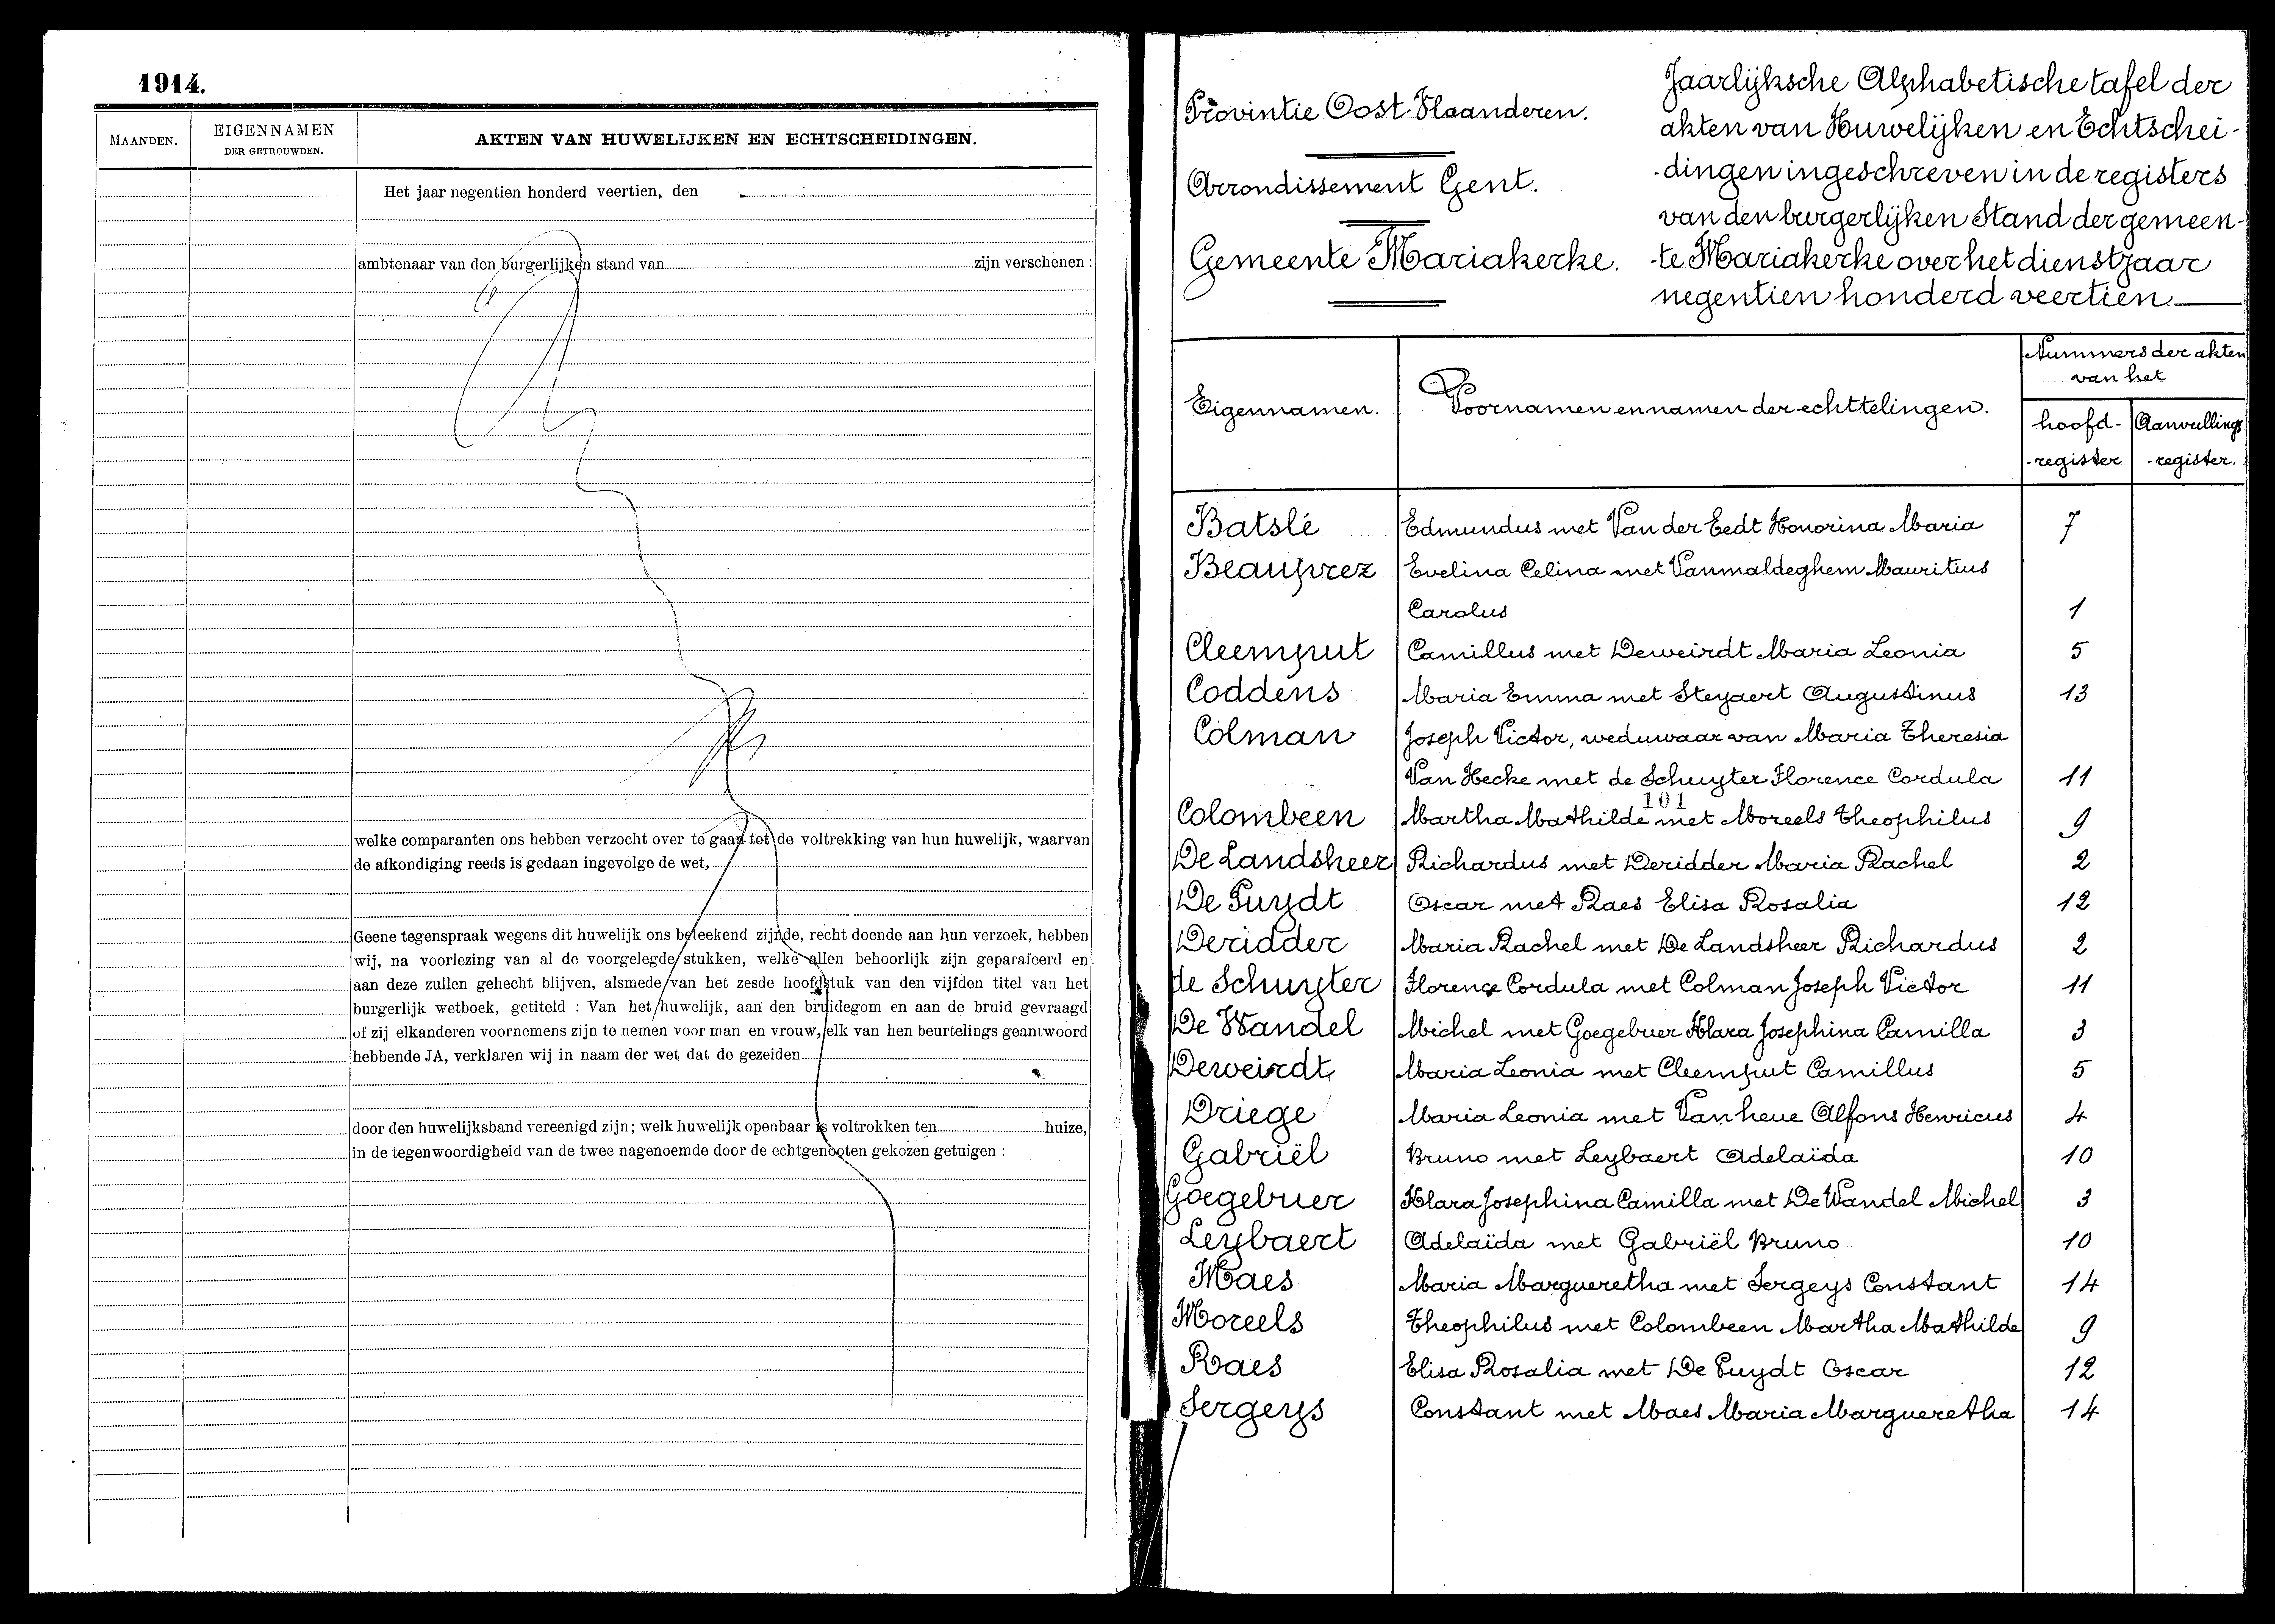 1914.
MAANDEN.
EIGENNAMEN
DER GETROUWDEN.
AKTEN VAN HUWELIJKEN EN ECHTSCHEIDINGEN.
Het jaar negentien honderd veertien, den
ambtenaar van den burgerlijken stand van zijn verschenen :
welke comparanten ons hebben verzocht over te gaan tot de voltrekking van hun huwelijk, waarvan
de afkondiging reeds is gedaan ingevolge de wet,
Geene tegenspraak wegens dit huwelijk ons beteekend zijnde, recht doende aan hun verzoek, hebben
wij, na voorlezing van al de voorgelegde stukken, welke allen behoorlijk zijn geparafeerd en
aan deze zullen gehecht blijven, alsmede van het zesde hoofdstuk van den vijfden titel van het
burgerlijk wetboek, getiteld : Van het huwelijk, aan den bruidegom en aan de bruid gevraagd
of zij elkanderen voornemens zijn te nemen voor man en vrouw, elk van hen beurtelings geantwoord
hebbende JA, verklaren wij in naam der wet dat de gezeiden
door den huwelijksband vereenigd zijn; welk huwelijk openbaar is voltrokken ten huize,
in de tegenwoordigheid van de twee nagenoemde door de echtgenooten gekozen getuigen :
Provintie Oost-Vlaanderen.
Arrondissement Gent.
Gemeente Mariakerke.
Jaarlijksche Alphabetische tafel der
akten van Huwelijken en Echtschei-
-dingen ingeschreven in de registers
van den burgerlijken Stand der gemeen-
-te Mariakerke over het dienstjaar
negentien honderd veertien.
Eigennamen.
Voornamen en namen der echttelingen.
Nummers der akten
van het
hoofd-
-register
Aanvullings
-register.
Batslé Edmundus met Van der Eedt Honorina Maria 7
Beauprez Evelina Celina met Vanmaldeghem Mauritius
Carolus 1
Cleemput Camillus met Deweirdt Maria Leonia 5
Coddens Maria Emma met Steyaert Augustinus 13
Colman Joseph Victor, weduwaar van Maria Theresia
Van Hecke met de Schuyter Florence Cordula 11
101
Colombeen Martha Mathilde met Moreels Theophilus 9
De Landsheer Richardus met Deridder Maria Rachel 2
De Puydt Oscar met Raes Elisa Rosalia 12
Deridder Maria Rachel met De Landsheer Richardus 2
de Schuyter Florence Cordula met Colman Joseph Victor 11
De Wandel Michel met Goegebuer Klara Josephina Camilla 3
Deweirdt Maria Leonia met Cleemput Camillus 5
Driege Maria Leonia met Vanheue Alfons Henricus 4
Gabriël Bruno met Leybaert Adelaïda 10
Goegebuer Klara Josephina Camilla met De Wandel Michel 3
Leybaert Adelaïda met Gabriël Bruno 10
Maes Maria Margueretha met Sergeys Constant 14
Moreels Theophilus met Colombeen Martha Mathilde 9
Raes Elisa Rosalia met De Puydt Oscar 12
Sergeys Constant met Maes Maria Margueretha 14